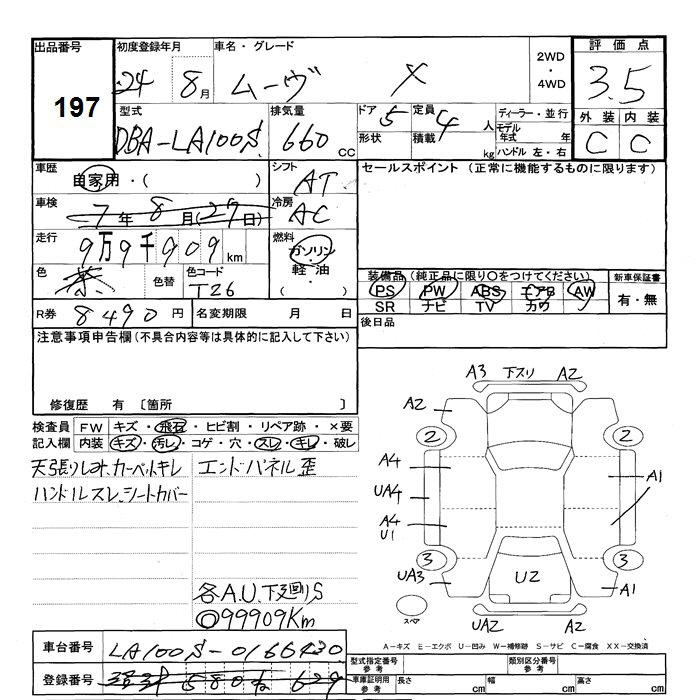 出品番号 初度登録年月 車名・グレード 2WD ・ 4WD 評価点
197 24 8月 ムーヴ X 3.5
型式 排気量 ドア 5 定員 4 人 ディーラー・並行 外装 内装
DBA-LA100S 660 CC 形状 積載 kg モデル年式 年 C C
ハンドル 左・右
車歴 自家用・( ) シフト AT セールスポイント (正常に機能するものに限ります)
車検 7年 8月(27日) 冷房 AC
走行 9万9千909 km 燃料 ガソリン・軽油・( )
色 茶 色替 色コード T26 装備品 (純正品に限り○をつけてください) 新車保証書
PS PW ABS エアB AW 有・無
R券 8490 円 名変期限 月 日 SR ナビ TV カワ
注意事項申告欄 (不具合内容等は具体的に記入して下さい) 後日品
修復歴 有 〔箇所 〕
検査員 FW キズ・飛石・ヒビ割・リペア跡・×要
記入欄 内装 キズ・汚レ・コゲ・穴・スレ・キレ・破レ
天張りしオ、カーペットキレ エンドパネル歪
ハンドルスレ、シートカバー
各A.U.下廻りS
◎99909Km
A3 下スリ A2
A2 A2
2 2
A4 A1
UA4
A4
U1
3 3
UA3 U2 A1
スペア UA2 A2
A-キズ E-エクボ U-凹み W-補修跡 S-サビ C-腐食 XX-交換済
車台番号 LA100S-0166430 型式指定番号 参考 類別区分番号 参考
登録番号 580 629 車庫証明用 参考 長さ cm 幅 cm 高さ cm